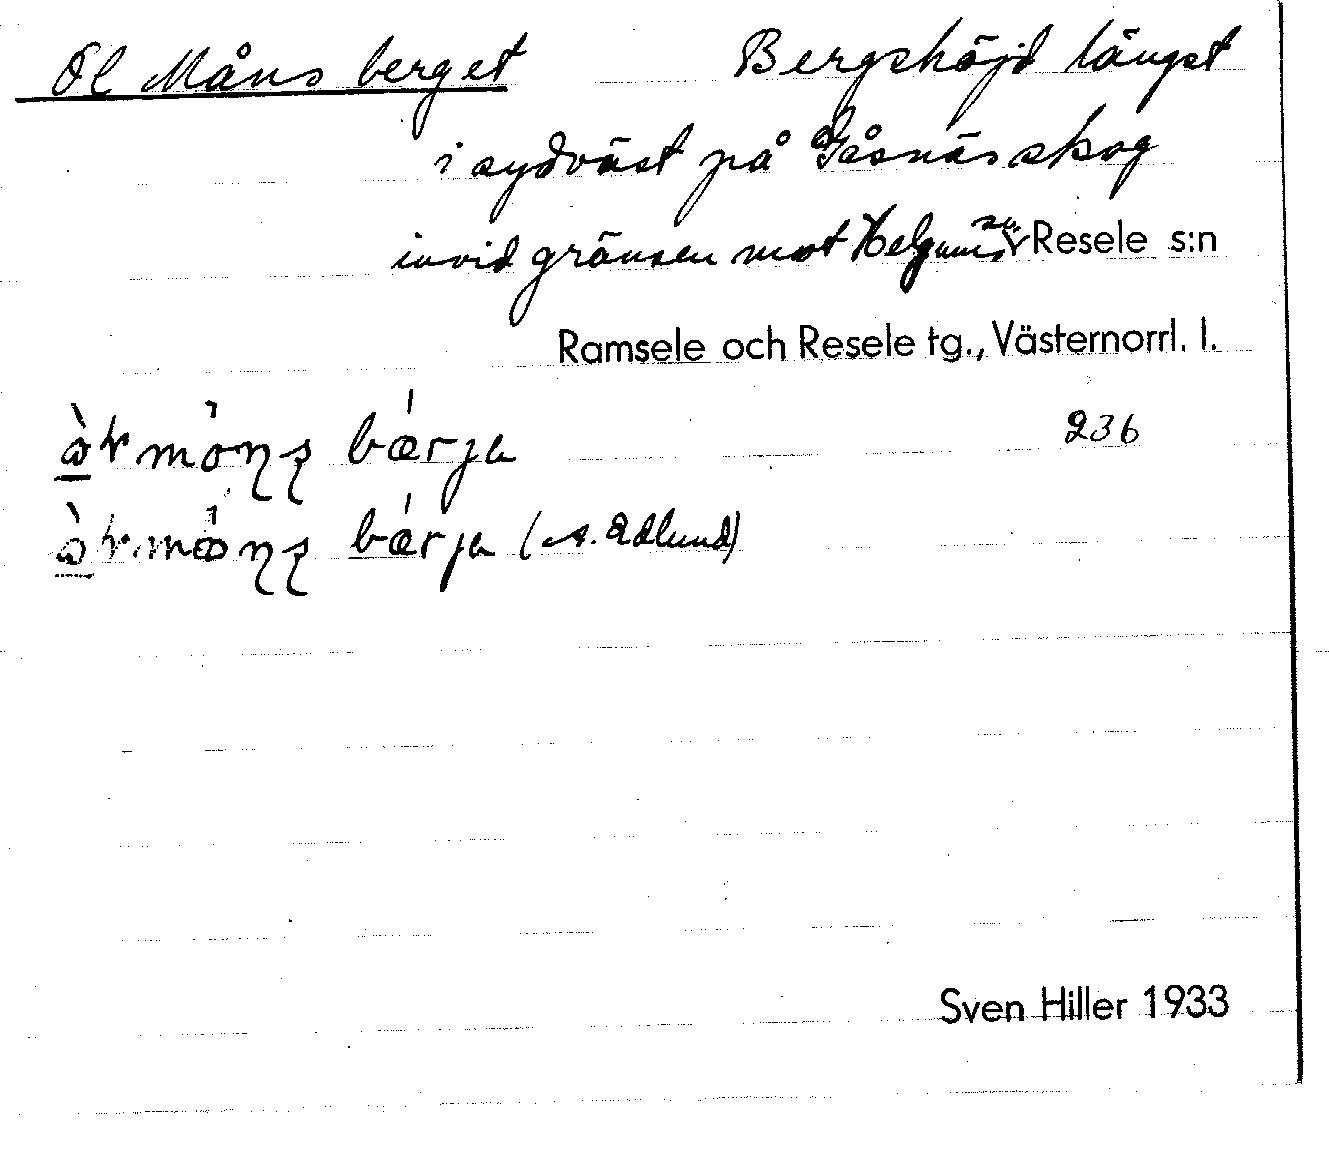 Ol Måns berget Bergshöjd längst
i sydväst på Gåsnäs skog
invid gränsen mot Helgums sn. Resele s:n
Ramsele och Resele tg., Västernorrl. l.
236
bǽrja
bǽrja (A. Edlund)
Sven Hiller 1933